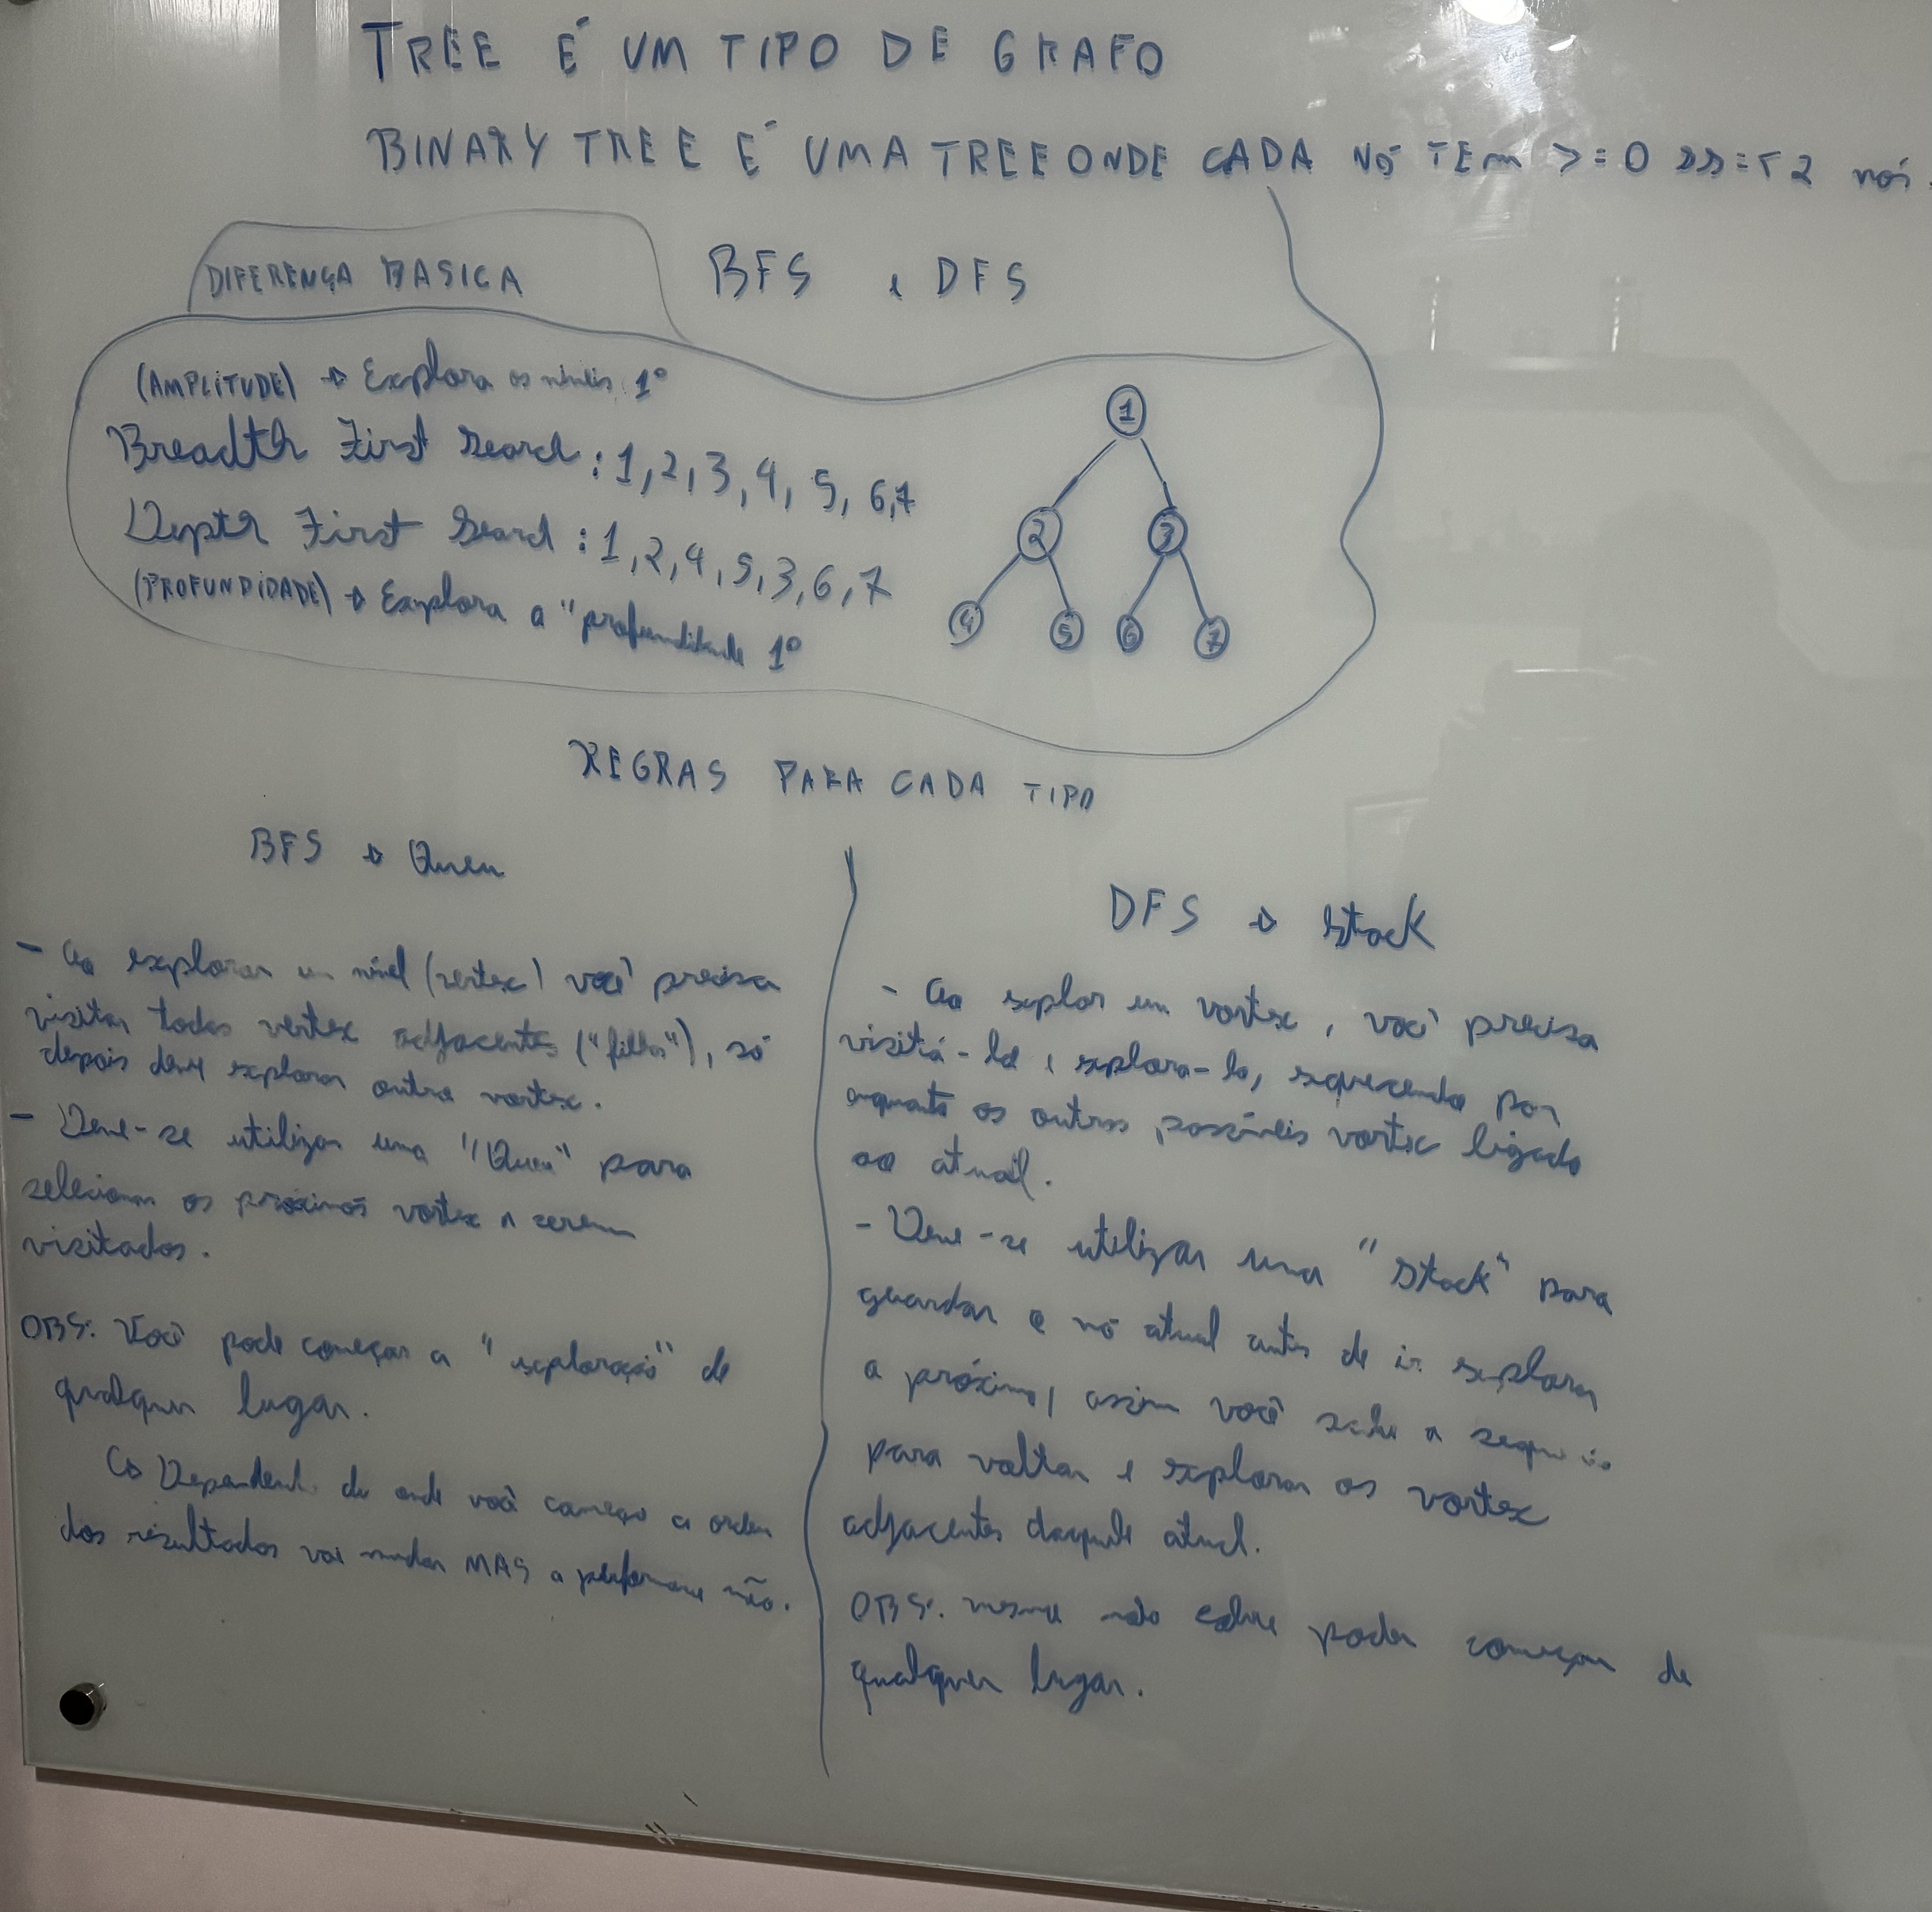 TREE É UM TIPO DE GRAFO
BINARY TREE É UMA TREE ONDE CADA NÓ TEM >= 0 nós.
DIFERENÇA BASICA
BFS e DFS
(AMPLITUDE) → Explora os níveis 1º
Breadth First Search : 1, 2, 3, 4, 5, 6, 7
Depth First Search : 1, 2, 4, 5, 3, 6, 7
(PROFUNDIDADE) → Explora a "profundidade 1º
1
2 3
4 5 6 7
REGRAS PARA CADA TIPO
BFS → Queu
- Ao explorar um nível (vertex) você precisa
visitar todos vertex adjacentes ("filhos"), só
depois deve explorar outro vertex.
- Deve-se utilizar uma "Queu" para
selecionar os próximos vortex a serem
visitados.
OBS: Você pode começar a "exploração" de
qualquer lugar.
↳ Dependendo de onde você começa a ordem
dos resultados vai mudar MAS a performance não.
DFS → Stack
- Ao explor um vortex, você precisa
visitá-lo e explora-lo, esquecendo por
enquanto os outros possíveis vortex ligado
ao atual.
- Deve-se utilizar uma "Stack" para
guardar o nó atual antes de ir explorar
a próximo, assim você sabe a
para voltar e explorar os vortex
adjacentes daquele atual.
OBS: mesma sobre poder começar de
qualquer lugar.